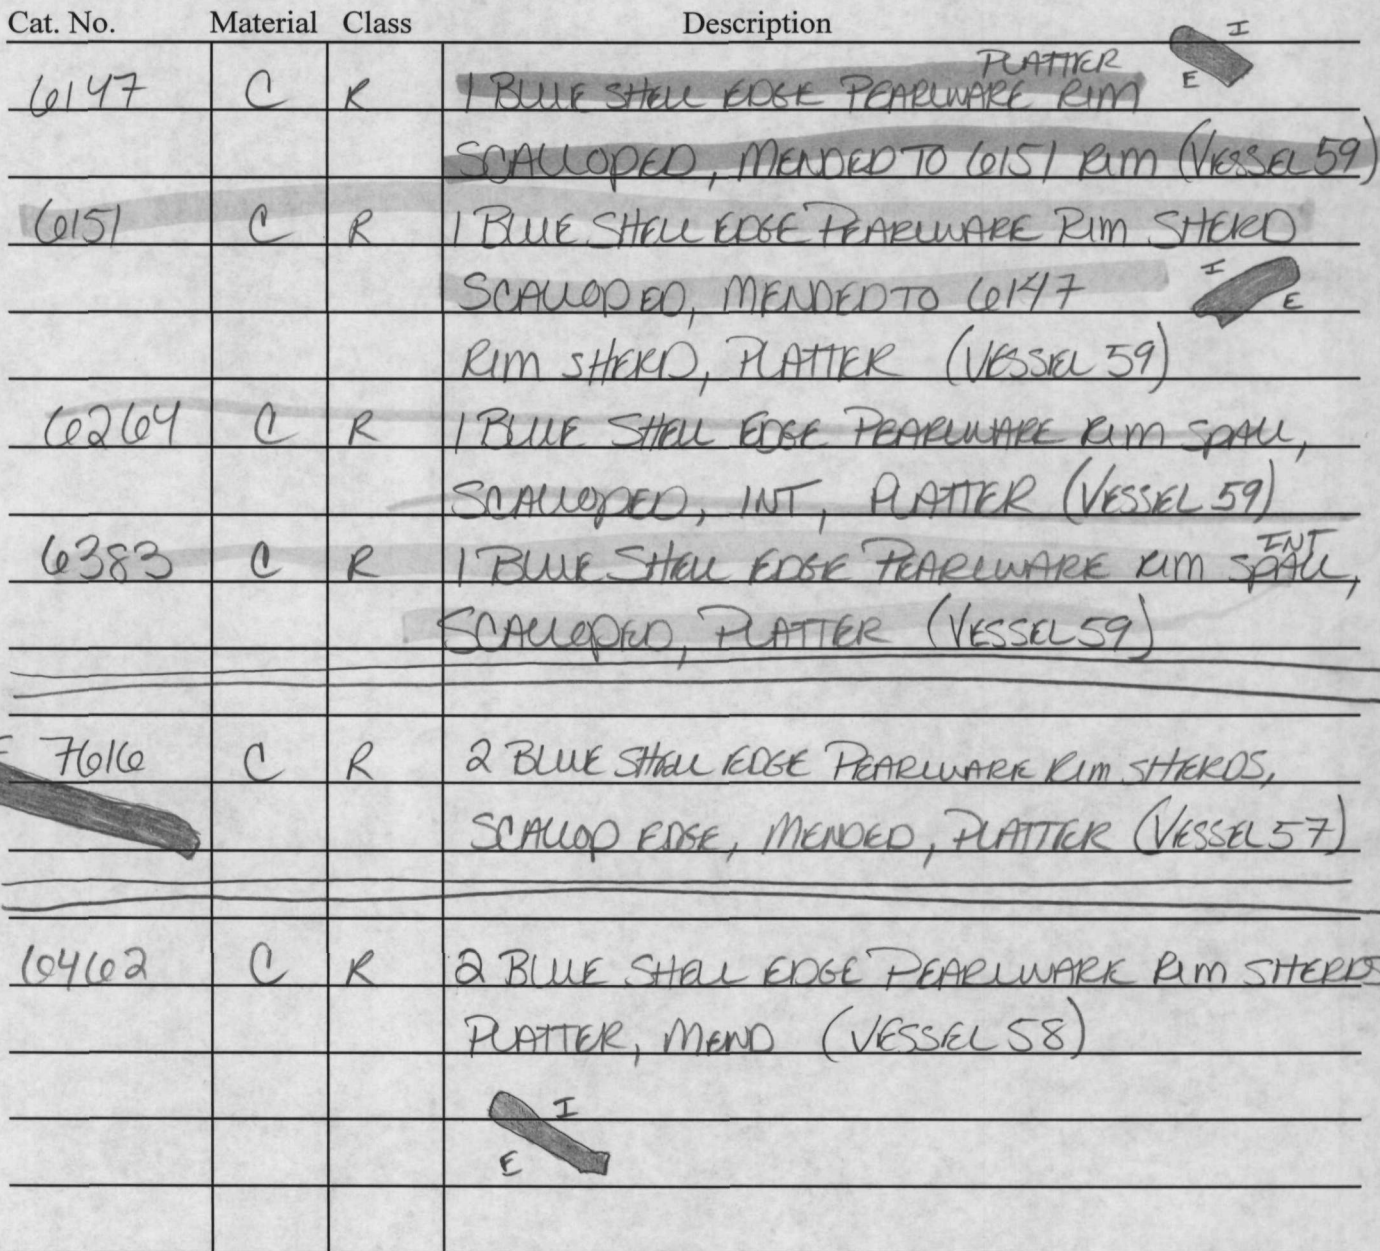 Cat. No. Material Class Description
PLATTER I
6147 C R 1 BLUE SHELL EDGE PEARLWARE RIM E
SCALLOPED, MENDED TO 6151 RIM (VESSEL 59)
6151 C R 1 BLUE SHELL EDGE PEARLWARE RIM SHERD
SCALLOPED, MENDED TO 6147 I E
RIM SHERD, PLATTER (VESSEL 59)
6264 C R 1 BLUE SHELL EDGE PEARLWARE RIM SPALL,
SCALLOPED, INT, PLATTER (VESSEL 59)
INT
6383 C R 1 BLUE SHELL EDGE PEARLWARE RIM SPALL,
SCALLOPED, PLATTER (VESSEL 59)
7616 C R 2 BLUE SHELL EDGE PEARLWARE RIM SHERDS,
SCALLOP EDGE, MENDED, PLATTER (VESSEL 57)
6462 C R 2 BLUE SHELL EDGE PEARLWARE RIM SHERDS
PLATTER, MEND (VESSEL 58)
I
E